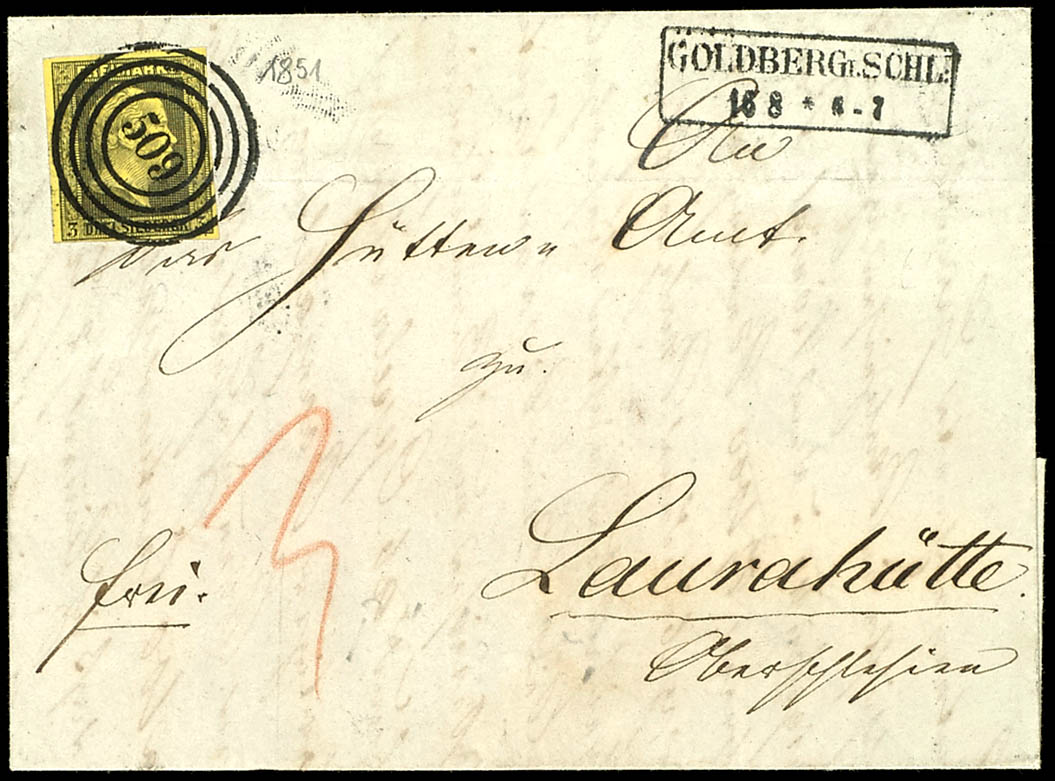 FREIMARKE
509
3 DREI SILBERGR. 3
1851
GOLDBERG I. SCHL:
16 8 * 6 - 7
An
das Hütten Amt.
zu.
Laurahütte.
Oberschlesien
frei.
3